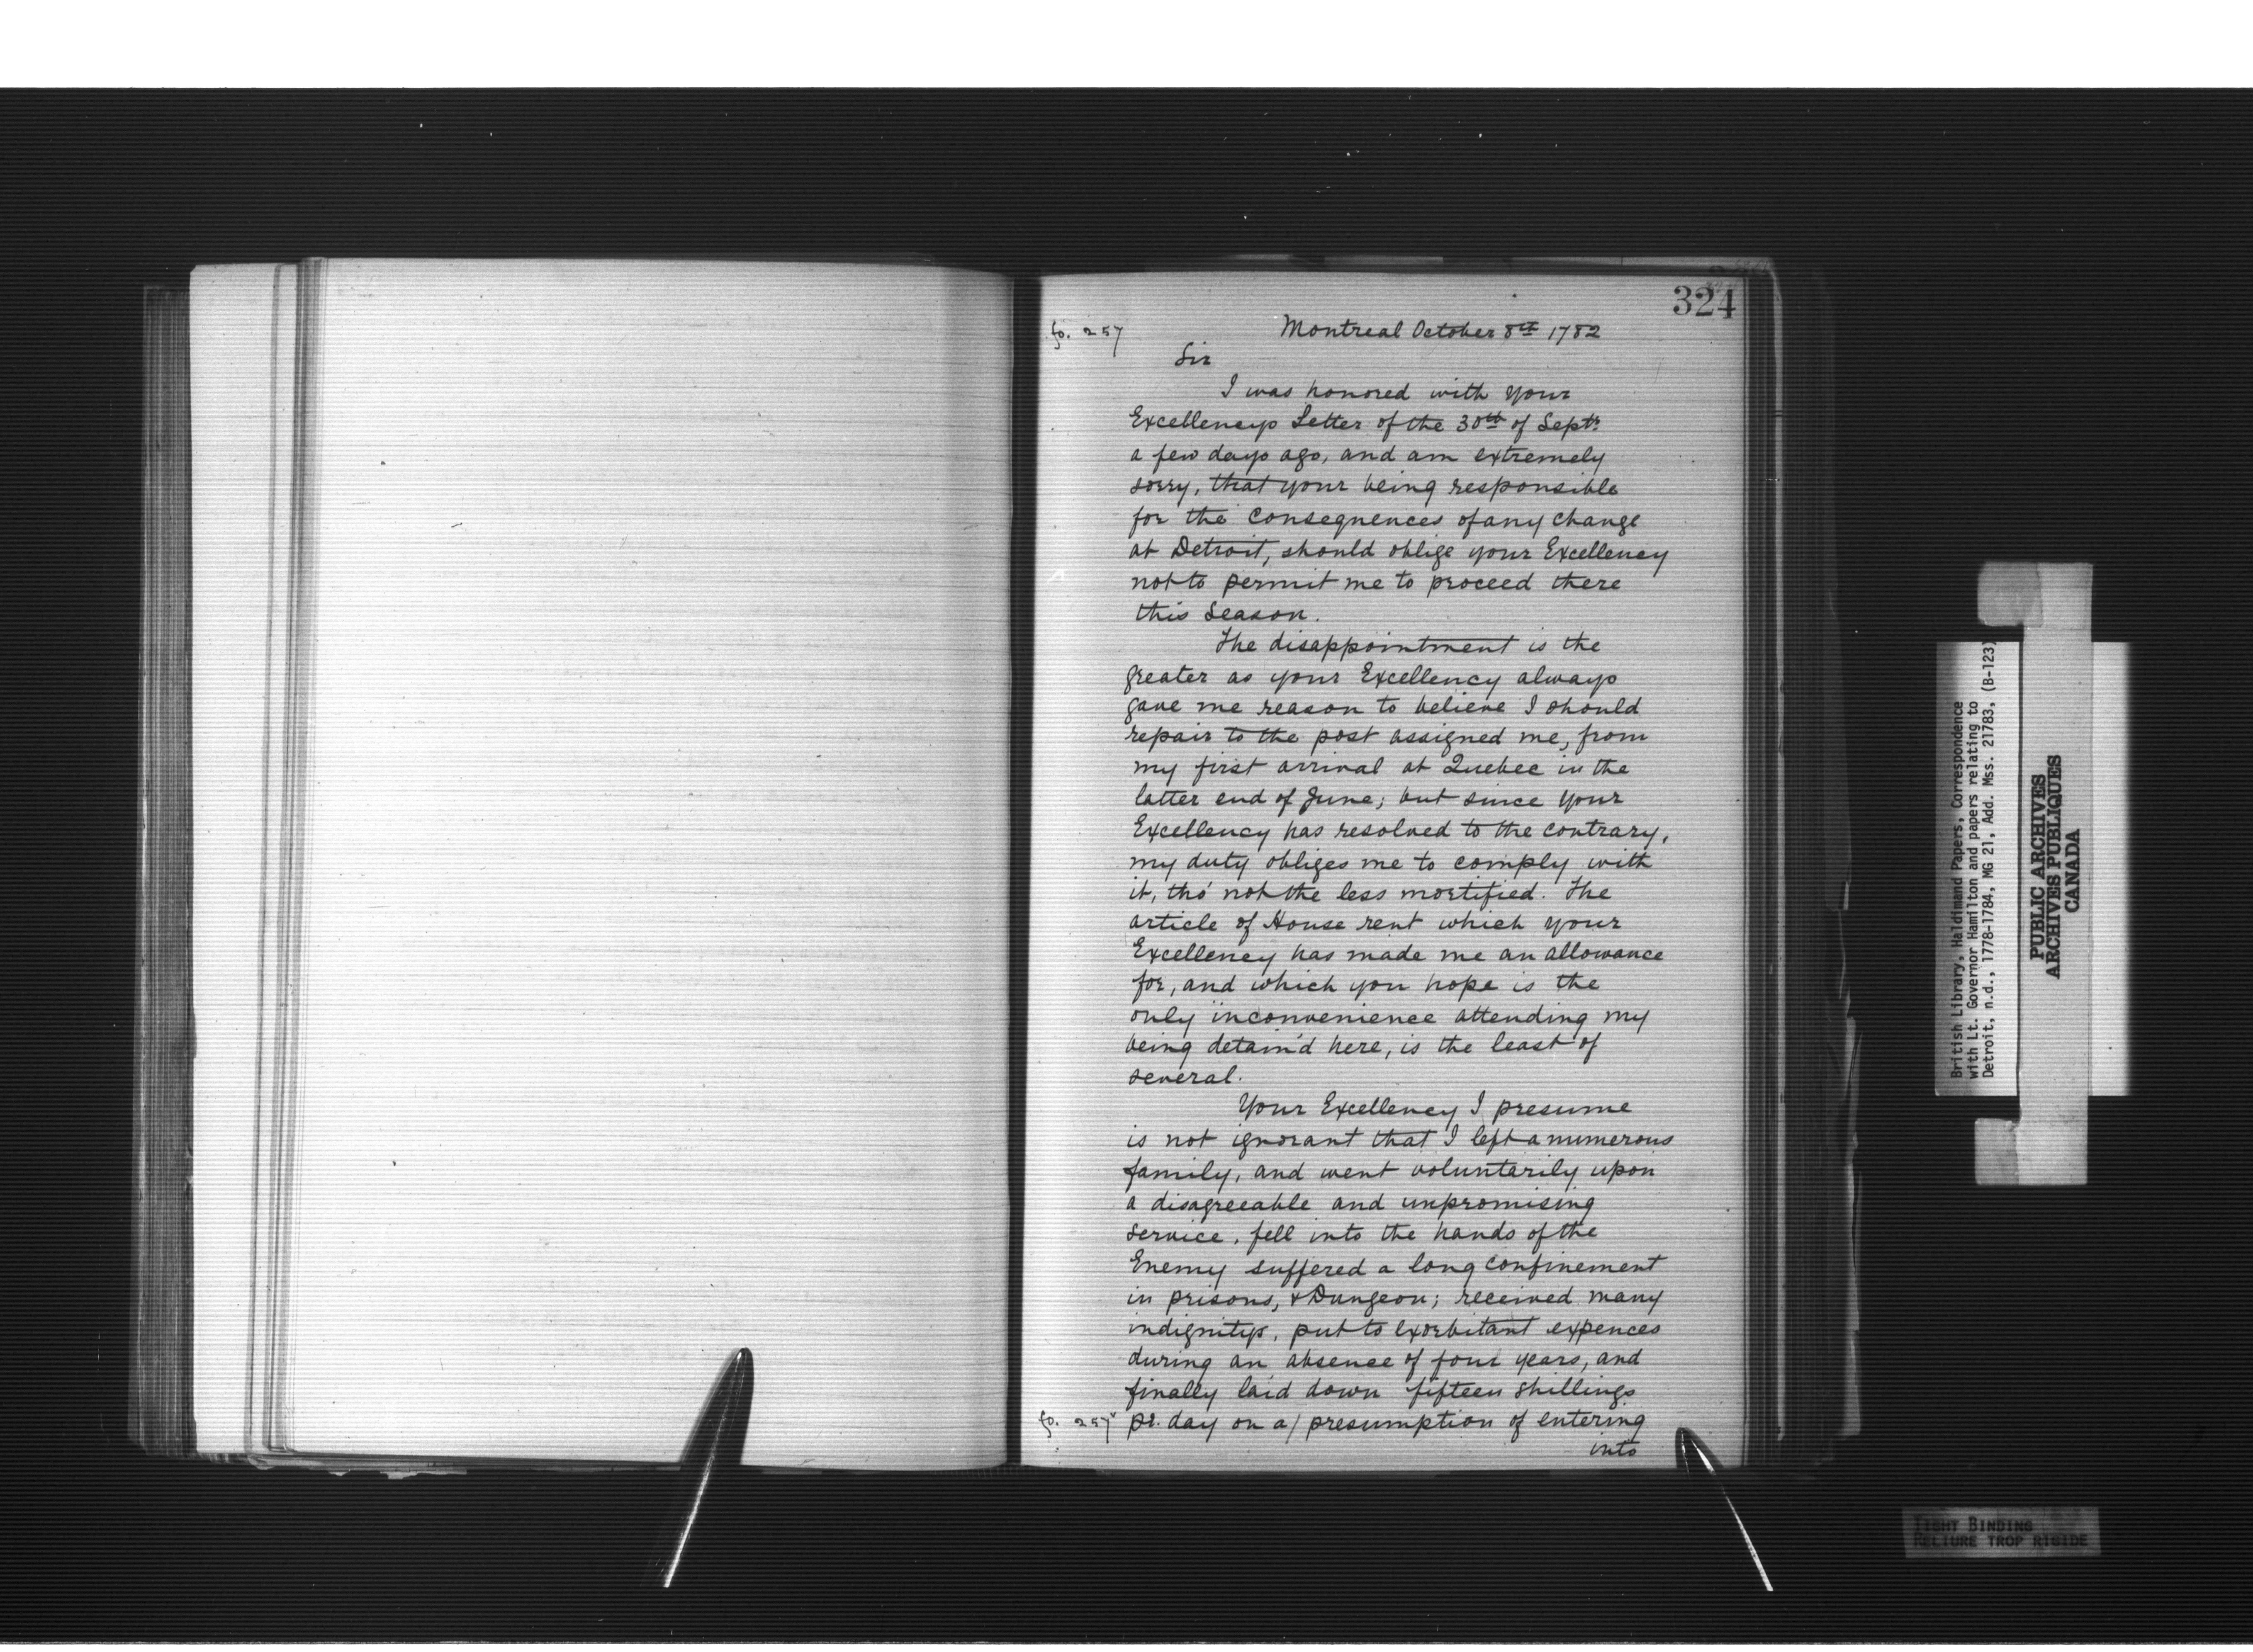 324
fo. 257 Montreal October 8th 1782
Sir
I was honored with your
Excellencys Letter of the 30th of Septr
a few days ago, and am extremely
sorry, that your being responsible
for the consequences of any change
at Detroit, should oblige your Excellency
not to permit me to proceed there
this Season.
The disappointment is the
greater as your Excellency always
gave me reason to believe I should
repair to the post assigned me, from
my first arrival at Quebec in the
latter end of June; but since your
Excellency has resolved to the contrary,
my duty obliges me to comply with
it, tho' not the less mortified. The
article of House rent which your
Excellency has made me an allowance
for, and which you hope is the
only inconvenience attending my
being detain'd here, is the least of
several.
Your Excellency I presume
is not ignorant that I left a numerous
family, and went voluntarily upon
a disagreeable and unpromising
service, fell into the hands of the
Enemy suffered a long confinement
in prisons, & Dungeon; received many
indignitys, put to exorbitant expences
during an absence of four years, and
finally laid down fifteen shillings
fo. 257v pr. day on a/ presumption of entering
into
British Library, Haldimand Papers, Correspondence
with Lt. Governor Hamilton and papers relating to
Detroit, n.d., 1778-1784, MG 21, Add. Mss. 21783, (B-123)
PUBLIC ARCHIVES
ARCHIVES PUBLIQUES
CANADA
TIGHT BINDING
RELIURE TROP RIGIDE